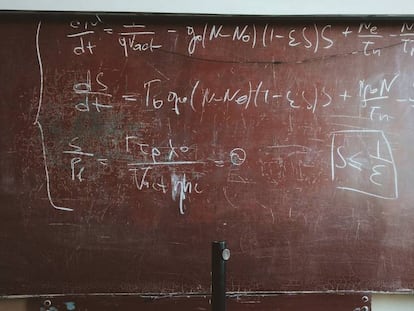 dN/dt = I/qVact - g₀(N-N₀)(1-εS)S + Ne/τn -
dS/dt = Γ₀g₀(N-N₀)(1-εS)S + N/τn -
S/Pf = Γτpλ₀/Vact ηhc =
S ≤ 1/ε